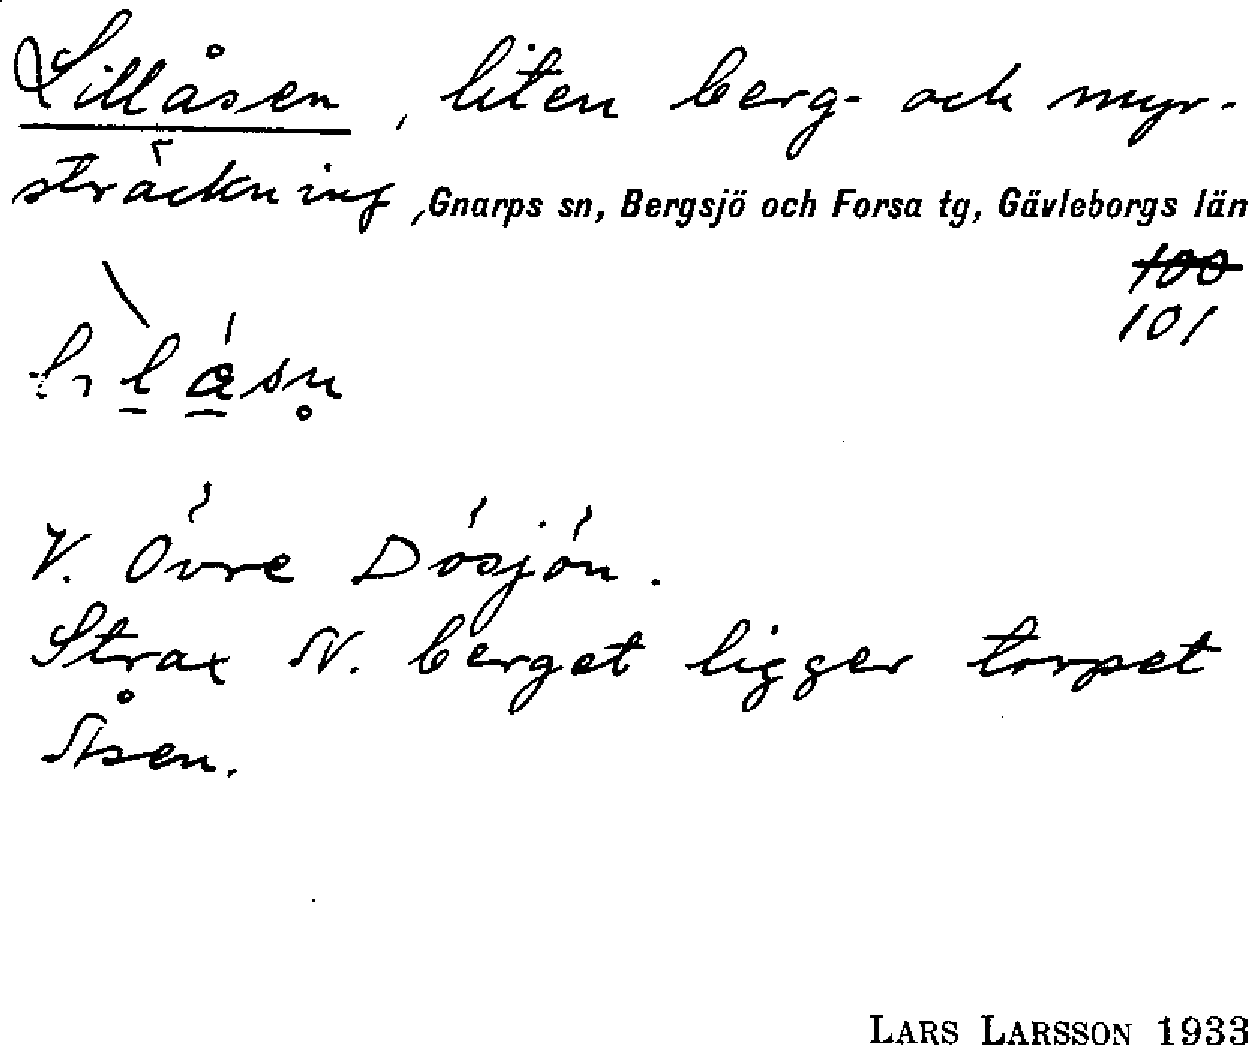 Lillåsen, liten berg- och myr-
sträckning, Gnarps sn, Bergsjö och Forsa tg, Gävleborgs län
100
101
V. Övre Dösjön.
Strax N. berget ligger torpet
Åsen.
LARS LARSSON 1933